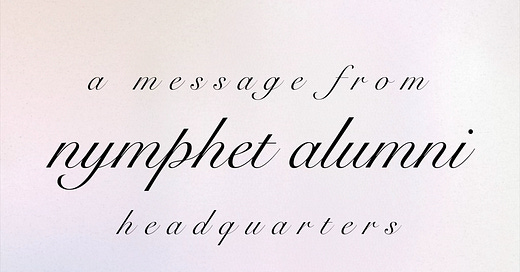 a message from
nymphet alumni
headquarters